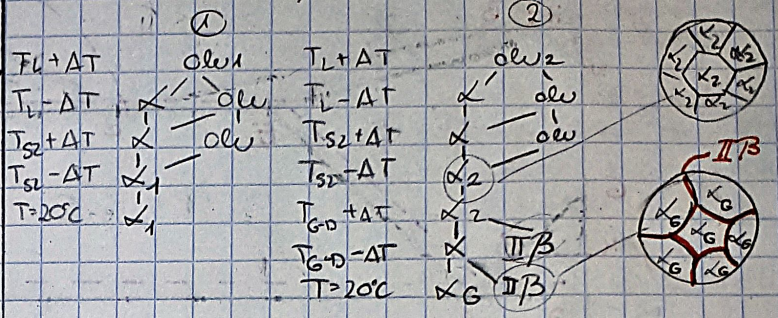 1
T_L + ΔT Olu 1
T_L − ΔT α Olu
T_S2 + ΔT α Olu
T_S2 − ΔT α1
T=20°C α1
2
T_L + ΔT Olu 2
T_L − ΔT α Olu
T_S2 + ΔT α Olu
T_S2 − ΔT α2
T_G-D + ΔT α2
T_G-D − ΔT α IIβ
T=20°C αG IIβ
α2 α2 α2 α2 α2 α2 α2
IIβ
αG αG αG αG αG αG